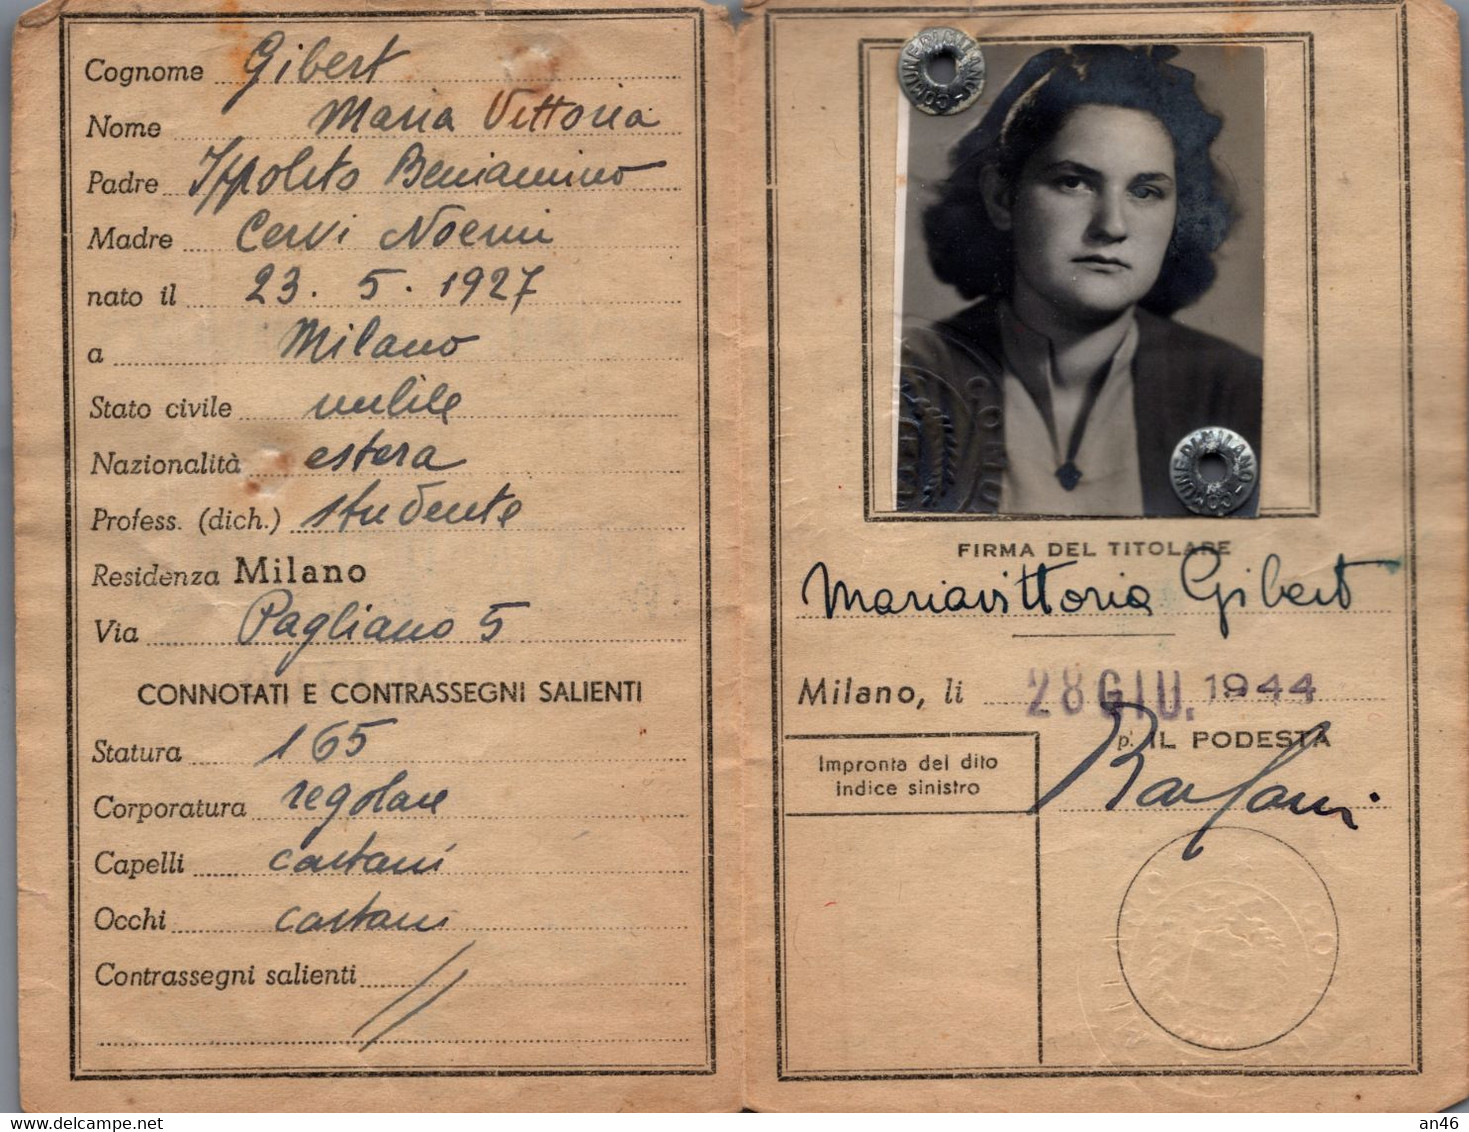 Cognome Gibert
Nome Maria Vittoria
Padre Ippolito Beniamino
Madre Cervi Noemi
nato il 23. 5. 1927
a Milano
Stato civile nubile
Nazionalità estera
Profess. (dich.) studente
Residenza Milano
Via Pagliano 5
CONNOTATI E CONTRASSEGNI SALIENTI
Statura 165
Corporatura regolare
Capelli castani
Occhi castani
Contrassegni salienti
COMUNE DI MILANO
COMUNE DI MILANO
FIRMA DEL TITOLARE
Mariavittoria Gibert
Milano, li 28 GIU. 1944
p. IL PODESTÀ
Impronta del dito
indice sinistro
delcampe.net
an46